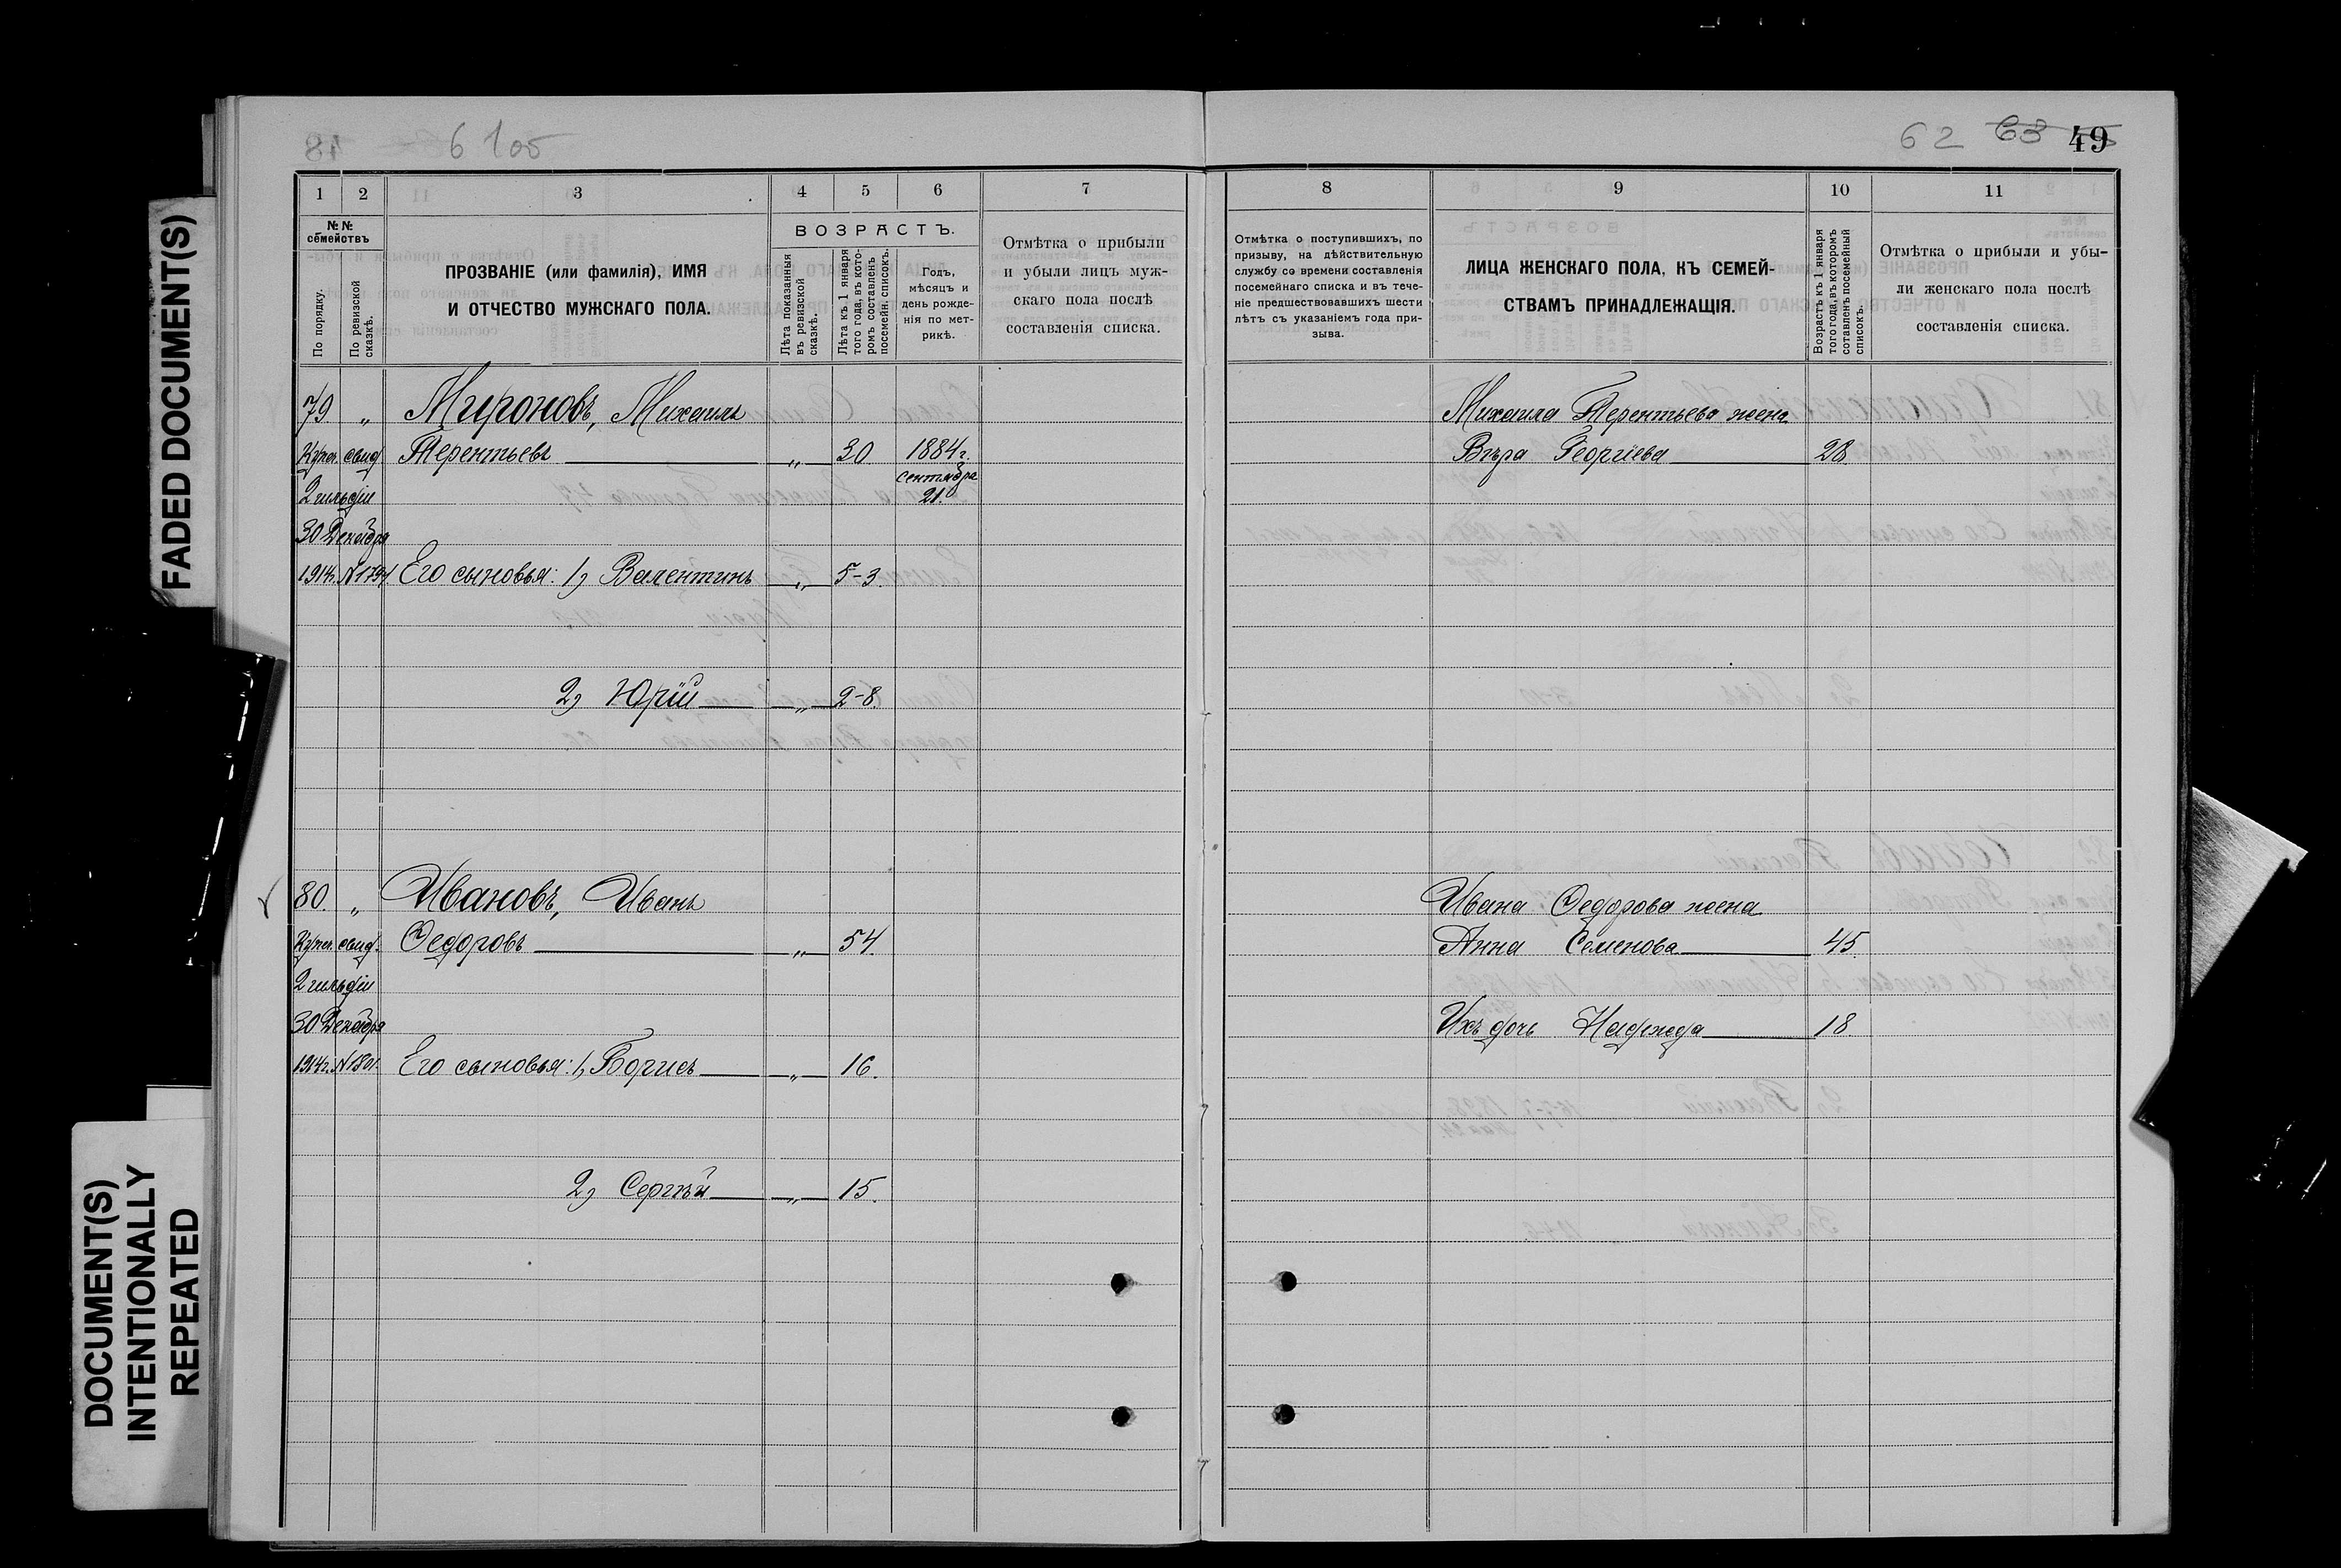 6 100
62 63 49
1 2 3 4 5 6 7
8 9 10 11
№ № семействъ
По порядку.
По ревизской сказкѣ.
ПРОЗВАНІЕ (или фамилія), ИМЯ
И ОТЧЕСТВО МУЖСКАГО ПОЛА.
ВОЗРАСТЪ.
Лѣта показанныя
въ ревизской
сказкѣ.
Лѣта къ 1 января
того года, въ кото-
ромъ составленъ
посемейн. списокъ.
Годъ,
мѣсяцъ и
день рожде-
нія по мет-
рикѣ.
Отмѣтка о прибыли
и убыли лицъ муж-
скаго пола послѣ
составленія списка.
Отмѣтка о поступившихъ, по
призыву, на дѣйствительную
службу со времени составленія
посемейнаго списка и въ тече-
ніе предшествовавшихъ шести
лѣтъ съ указаніемъ года при-
зыва.
ЛИЦА ЖЕНСКАГО ПОЛА, КЪ СЕМЕЙ-
СТВАМЪ ПРИНАДЛЕЖАЩІЯ.
Возрастъ къ 1 января
того года, въ которомъ
составленъ посемейный
списокъ.
Отмѣтка о прибыли и убы-
ли женскаго пола послѣ
составленія списка.
79. „ Мироновъ, Михаилъ
Купеч. свид. Терентьевъ „ 30 1884 г.
2 гильдіи сентября
21.
30 Декабря
1914 г. № 1794 Его сыновья: 1) Валентинъ „ 5-3.
2) Юрій „ 2-8.
Михаила Терентьева жена
Вѣра Георгіева 28.
80. „ Ивановъ, Иванъ
Купеч. свид. Ѳедоровъ „ 54.
2 гильдіи
30 Декабря
1914 г. № 1801. Его сыновья: 1) Борисъ „ 16.
2) Сергѣй „ 15.
Ивана Ѳедорова жена
Анна Семенова 45.
Ихъ дочь Надежда 18.
FADED DOCUMENT(S)
DOCUMENT(S)
INTENTIONALLY
REPEATED